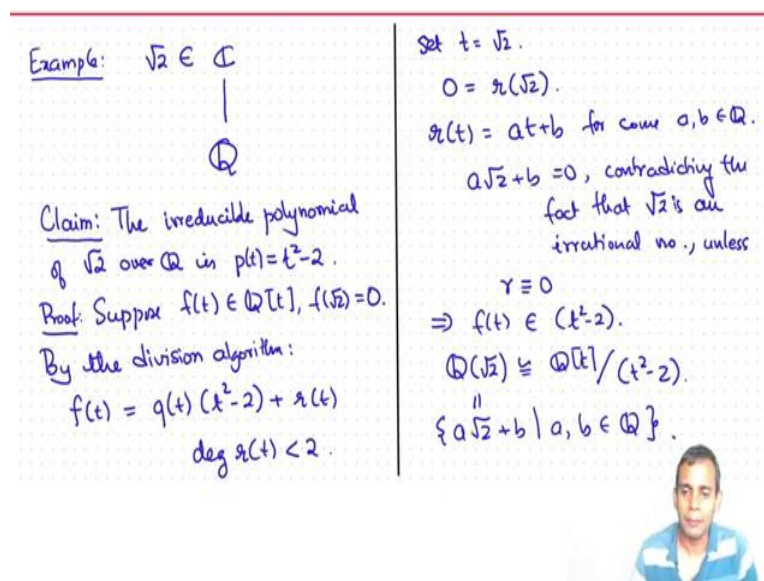 Example: √2 ∈ ℂ
|
ℚ
Claim: The irreducible polynomial
of √2 over ℚ is p(t)=t²-2.
Proof: Suppose f(t) ∈ ℚ[t], f(√2)=0.
By the division algorithm:
f(t) = q(t) (t²-2) + r(t)
deg r(t) < 2.
Set t = √2.
0 = r(√2).
r(t) = at+b for some a,b ∈ ℚ.
a√2+b = 0, contradicting the
fact that √2 is an
irrational no., unless
r ≡ 0
⇒ f(t) ∈ (t²-2).
ℚ(√2) ≅ ℚ[t]/(t²-2).
=
{a√2+b | a, b ∈ ℚ}.